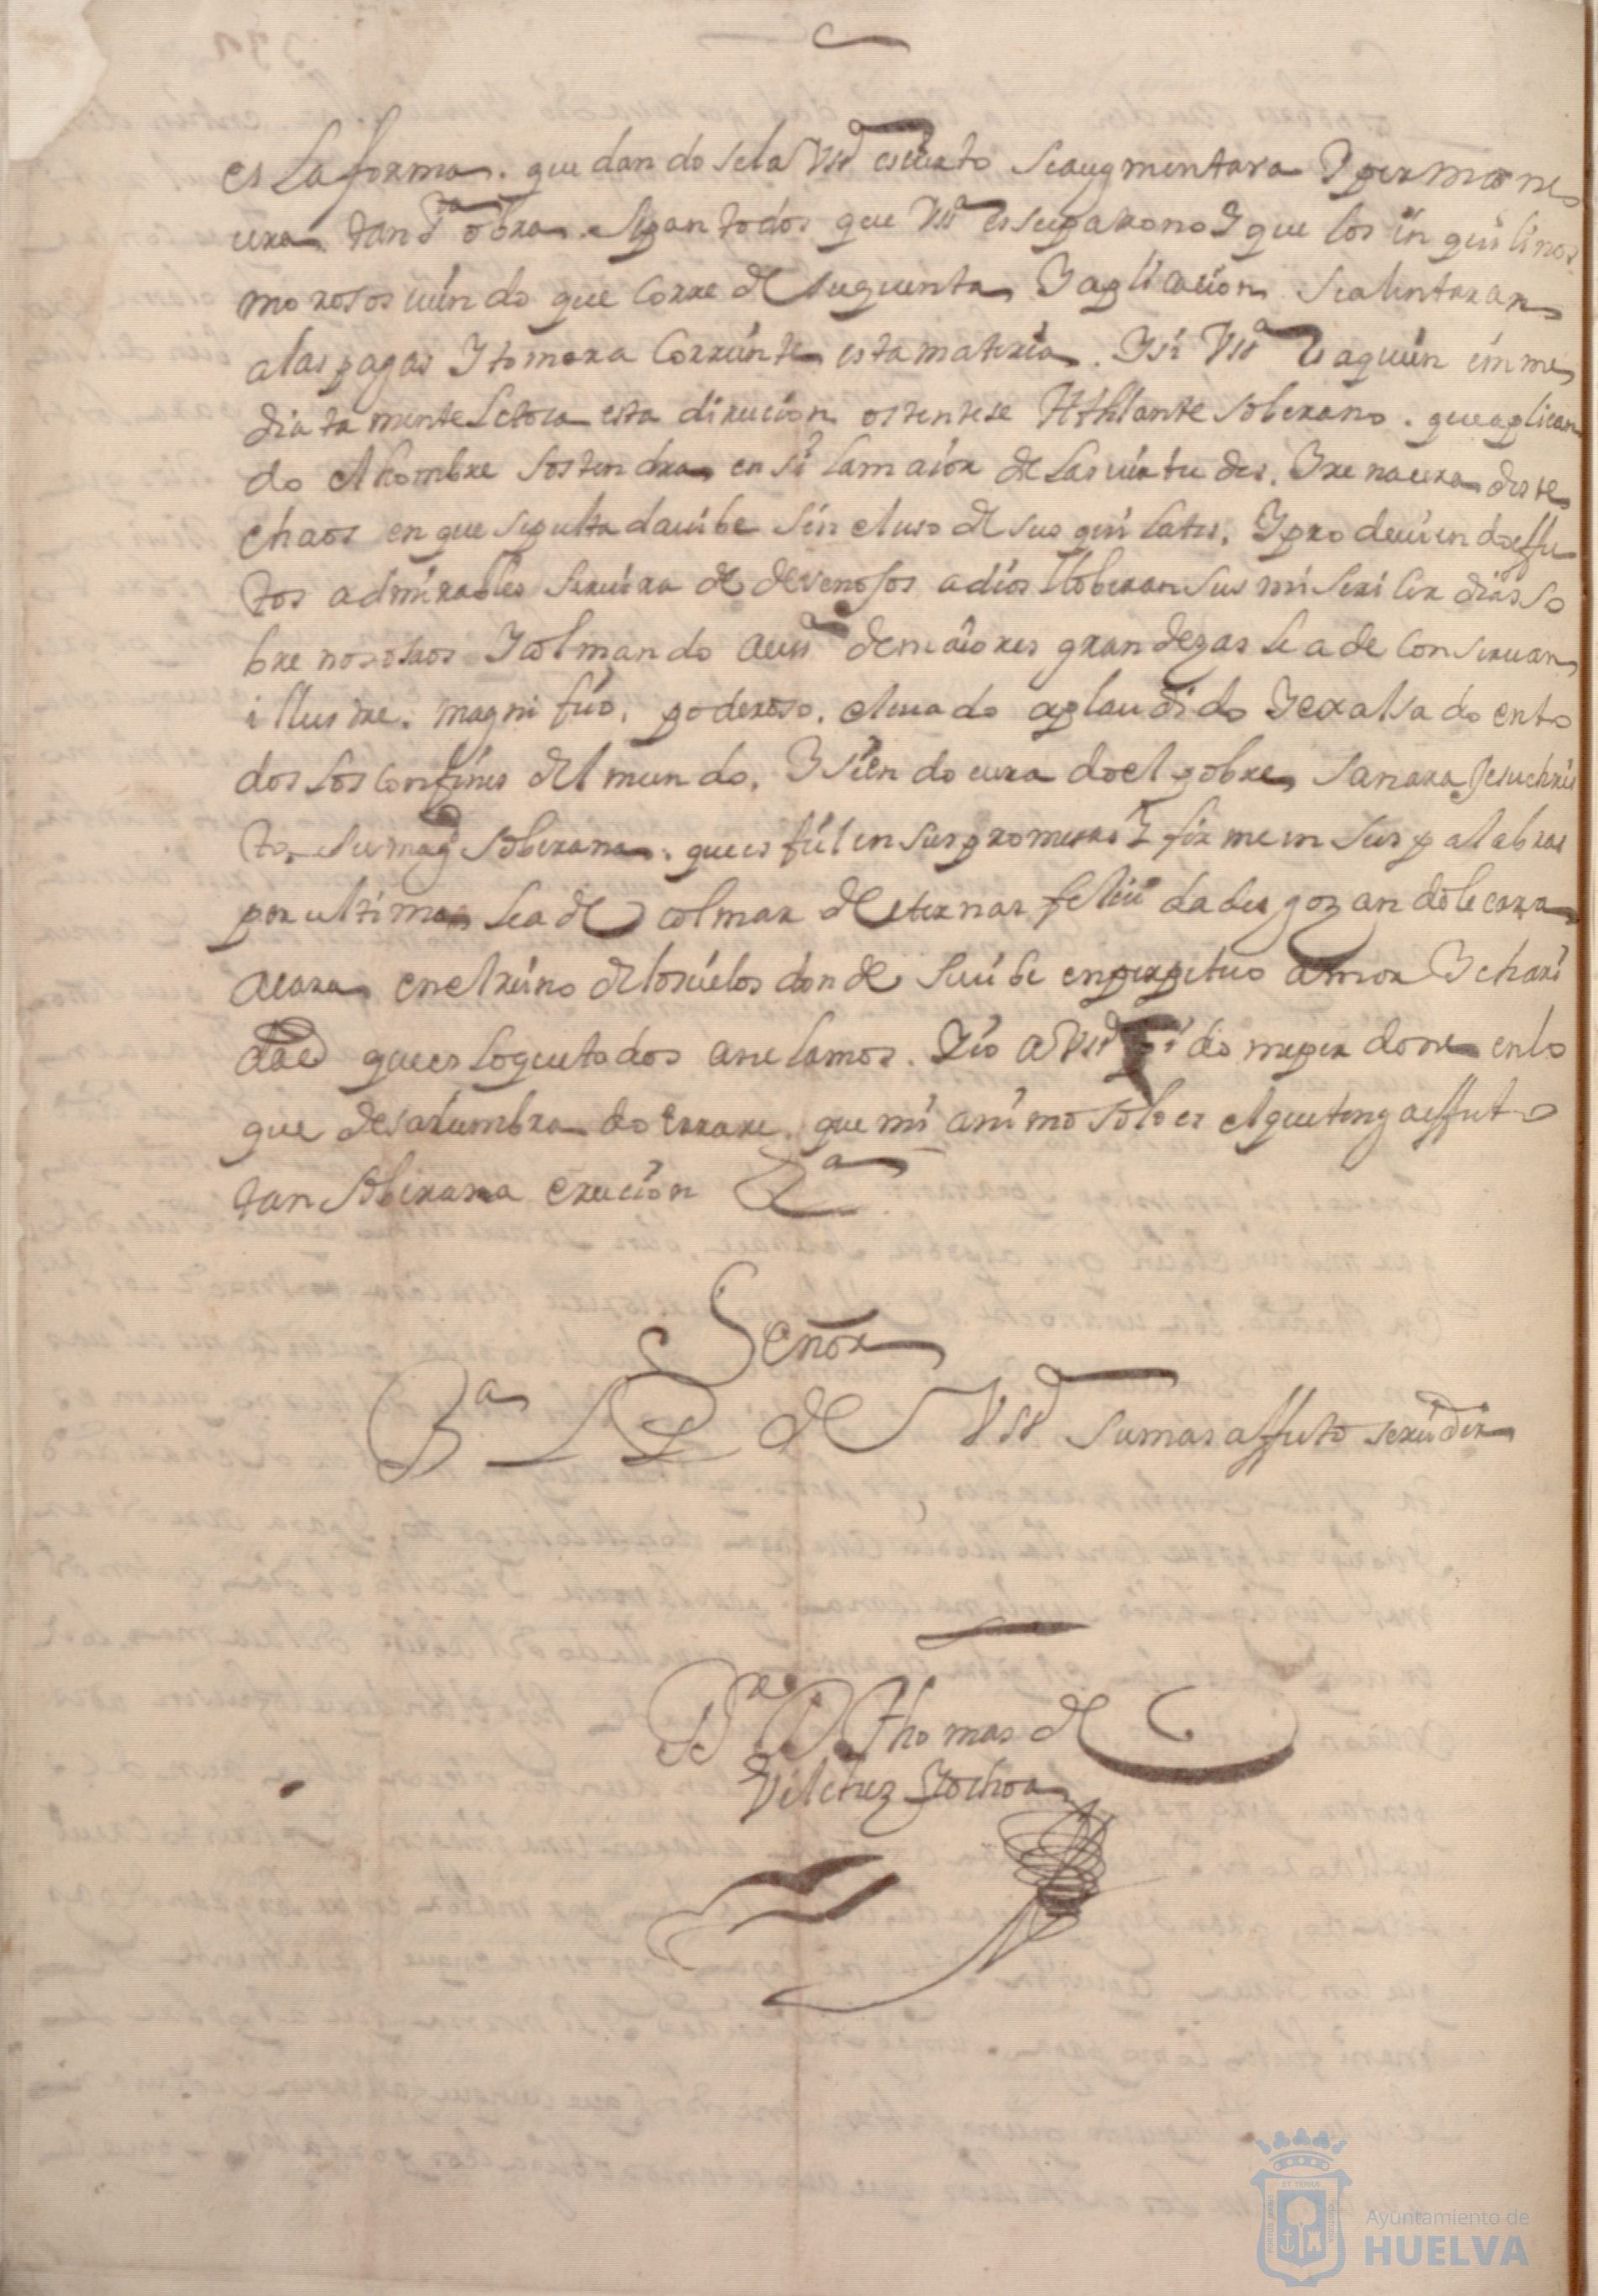 es la forma. que dandosela VSª es cierto se augmentara I permane
cera tan Sta obra. sepan todos que VSª es su patrono I que los inquilinos
morosos viendo que corre de su quenta I aplicacion se alentaran
a las pagas I tomara corriente esta materia. I si VSª es a quien inme
diatamente le toca esta direccion ostentese Athlante soberano. que aplican
do el hombro sostendra en si la maior de las virtudes. I renacera deste
chaos en que sepultada vibe sin el uso de sus quilates, I produciendo effec
tos admirables servira de devenosos a dios lloberan sus misericordias so
bre nosotros I colmando a VSª de maiores grandezas le a de conservar
illustre. magnifico, poderoso. elevado aplaudido I exalsado en to
dos los confines del mundo, I siendo curado el pobre, sanara Jesuchris
to. su magd soberana. que es fiel en sus promesas I firme en sus palabras
por ultimo le a de colmar de eternas felicidades gozandole cara
a cara en el reino de los cielos donde se vibe en perpetuo amor I chari
dad que es lo que todos anelamos. I io a VSª pido me perdone en lo
que desalumbrado errare, que mi animo solo es el que tenga effecto
tan soberana ereccion
Señor
Ba L P de VSª su mas affecto servidor
Br D Thomas de
Vilchez I ochoa
Ayuntamiento de
HUELVA